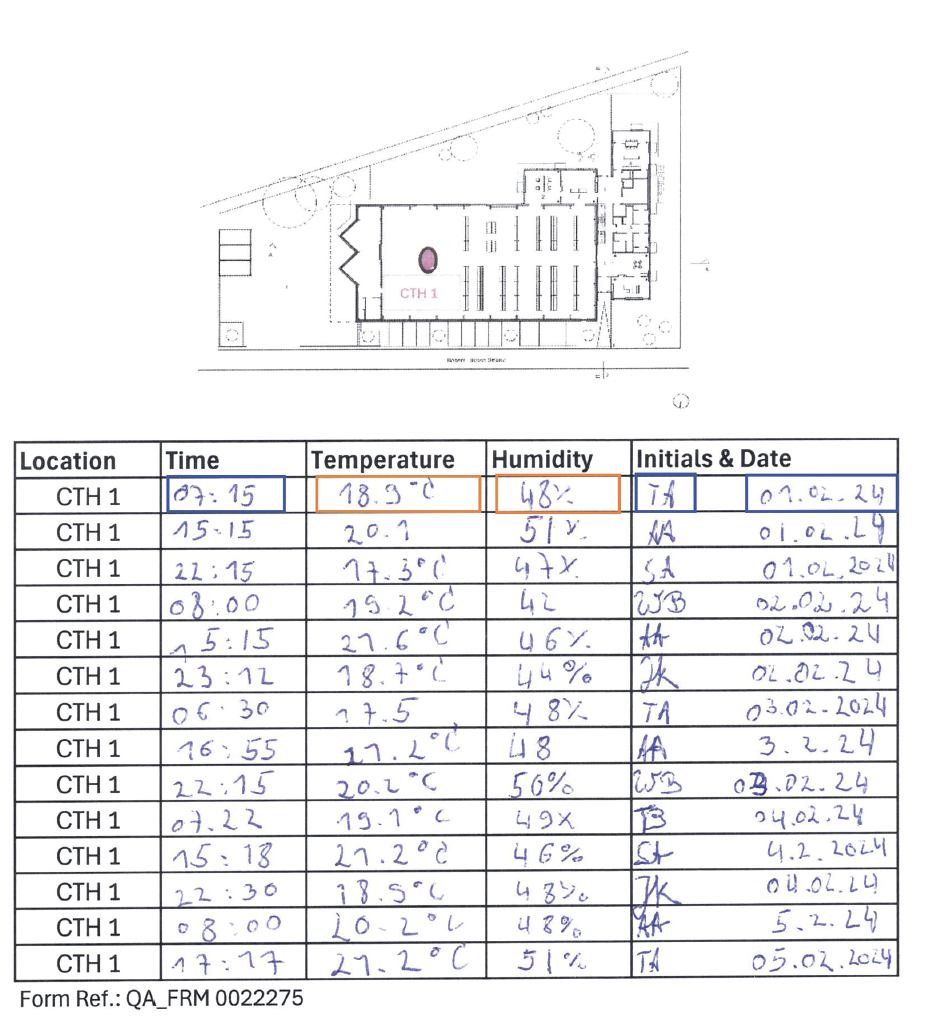 CTH 1
Location Time Temperature Humidity Initials & Date
CTH 1 07:15 18.9°C 48% TA 01.02.24
CTH 1 15:15 20.1 51% AA 01.02.24
CTH 1 22:15 17.3°C 47% SA 01.02.2024
CTH 1 08:00 19.2°C 42 WB 02.02.24
CTH 1 15:15 21.6°C 46% AA 02.02.24
CTH 1 23:12 18.7°C 44% JK 02.02.24
CTH 1 06:30 17.5 48% TA 03.02.2024
CTH 1 16:55 21.2°C 48 AA 3.2.24
CTH 1 22:15 20.2°C 50% WB 03.02.24
CTH 1 07.22 19.1°C 49% TB 04.02.24
CTH 1 15:18 21.2°C 46% SA 4.2.2024
CTH 1 22:30 18.9°C 48% JK 04.02.24
CTH 1 08:00 20.2°C 48% AA 5.2.24
CTH 1 17:17 21.2°C 51% TA 05.02.2024
Form Ref.: QA_FRM 0022275